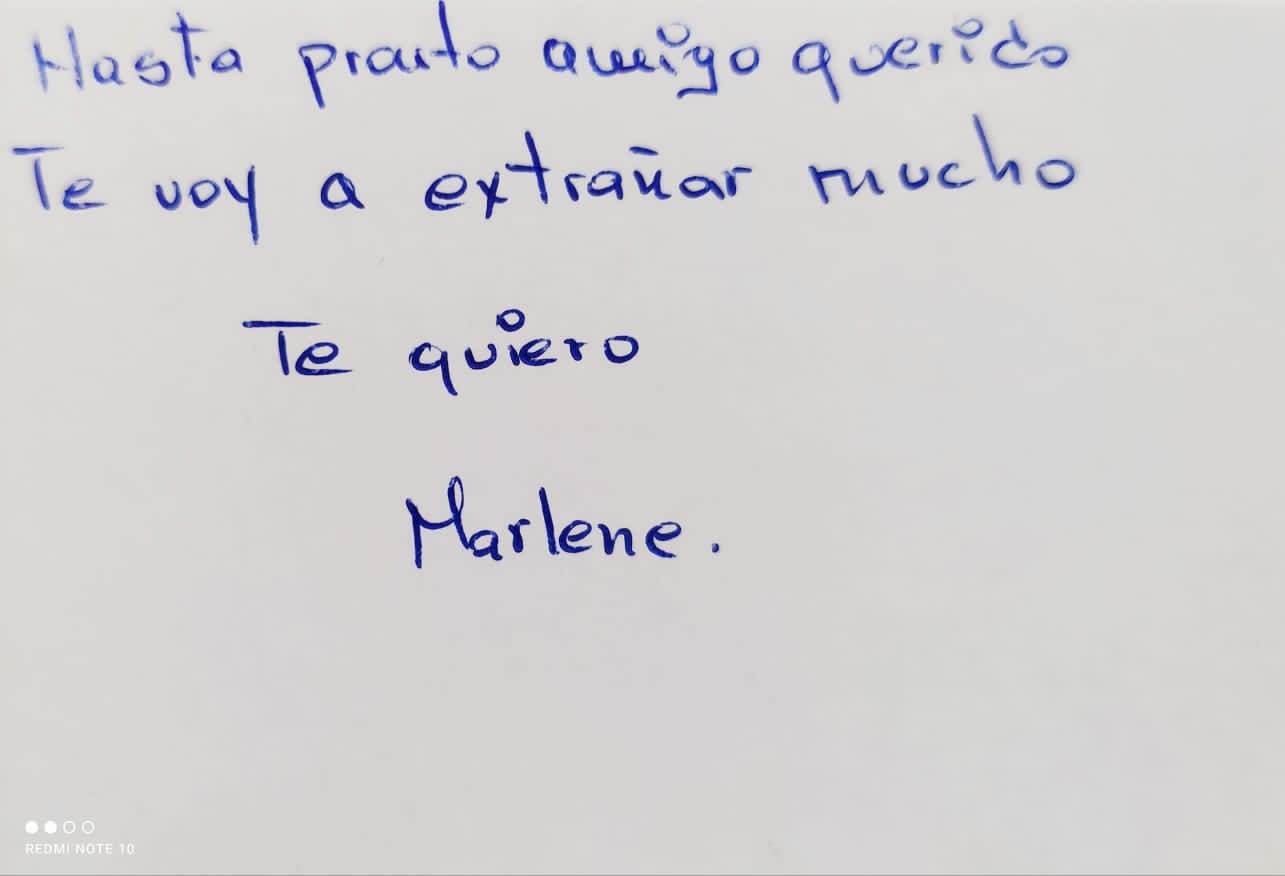 Hasta pronto amigo querido
Te voy a extrañar mucho
Te quiero
Marlene.
REDMI NOTE 10